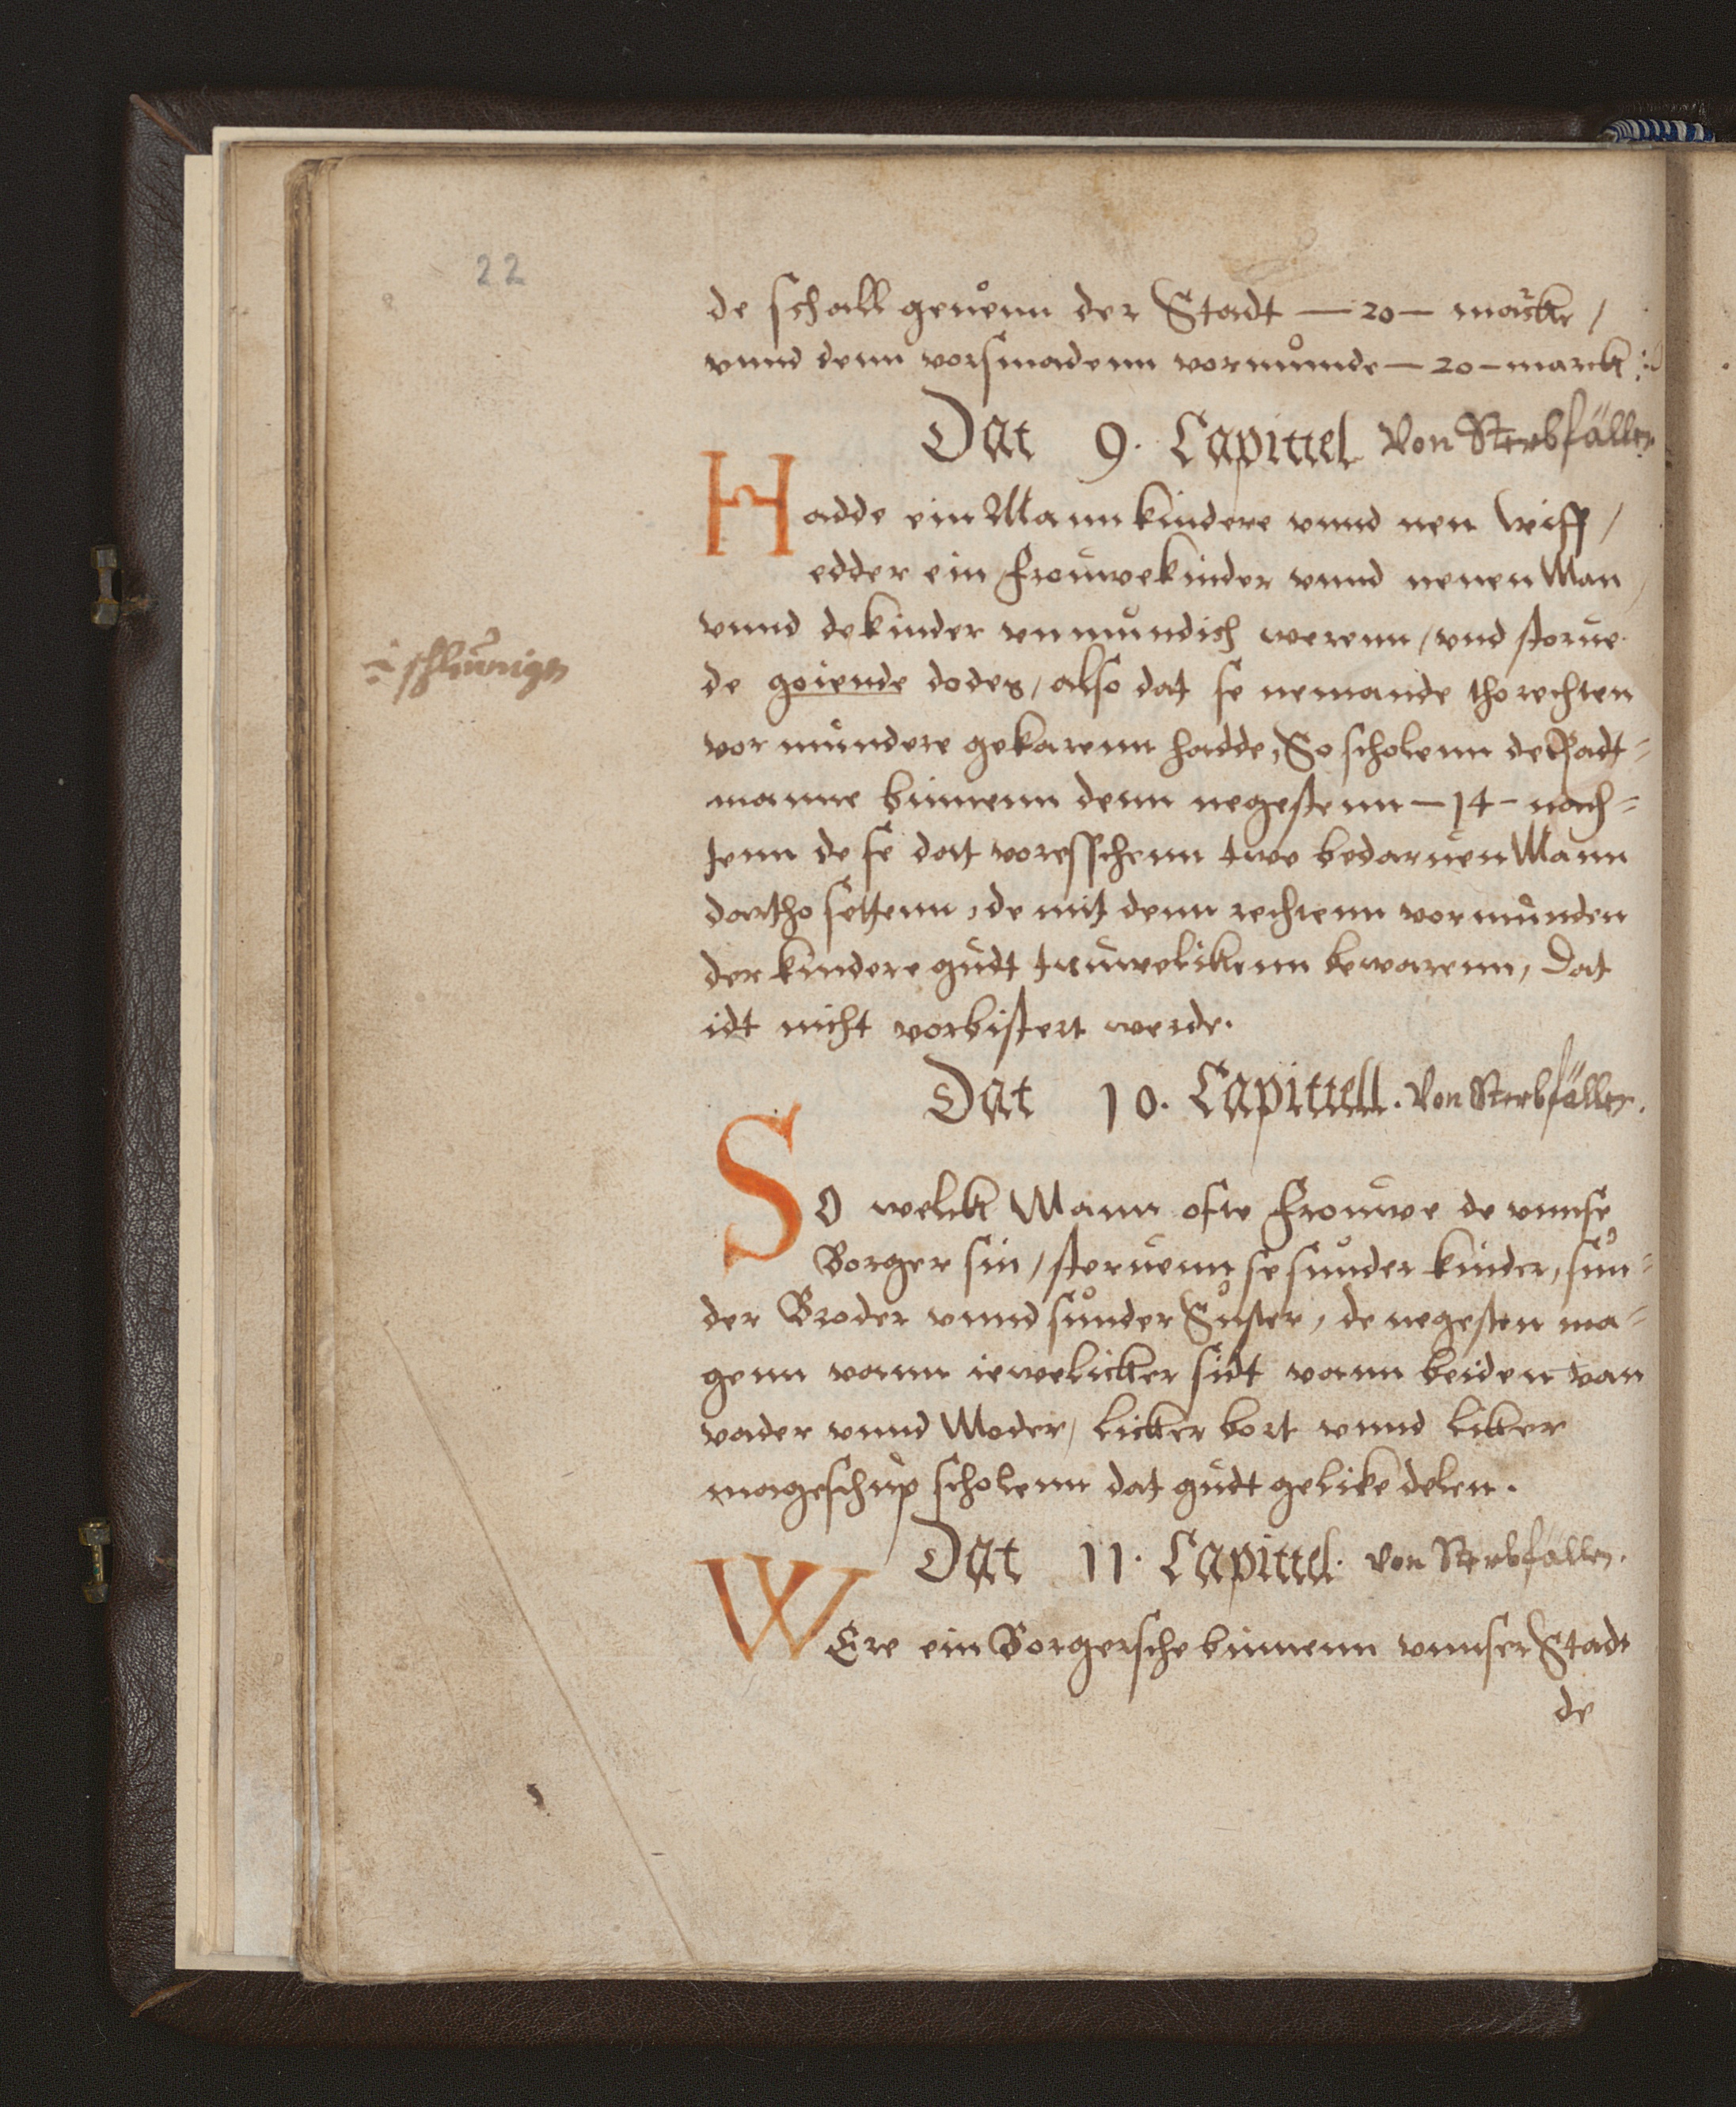 22
de schall geuenn der Stadt — 20 — marcke /
vnnd denn vorsmadenn vormunde — 20 — marck :
Dat 9. Capittel Von Sterbfällen
Hadde ein Mann kindere vnnd nen wiff /
edder ein frouwe kinder vnnd nenen Man /
vnnd de kinder vnmundich werenn / vnd storue
÷ schleunigen
de goiende dodes / also dat se nemande tho rechten
vormundere gekarenn hadde, So scholenn de Radt-
manne binnenn denn negestenn — 14 — nach-
tenn de se dat voresschenn twe bedaruen Mann
dartho settenn, de mit denn rechtenn vormunden
der kindere gudt truwelikenn bewarenn, Dat
idt nicht vorbistert werde.
Dat 10. Capittell. Von Sterbfällen.
SO welck Mann ofte frouwe de vnnse
Borger sin / steruenn se sunder kinder, sun-
der Broder vnnd sunder Suster, de negesten ma-
genn vann iewelicker sidt vann beiden van
vader vnnd Moder, licker bort vnnd licker
mageschup scholenn dat gudt gelike delen.
Dat 11. Capittel. Von Sterbfällen.
WEre ein Borgersche binnenn vnnser Stadt
de